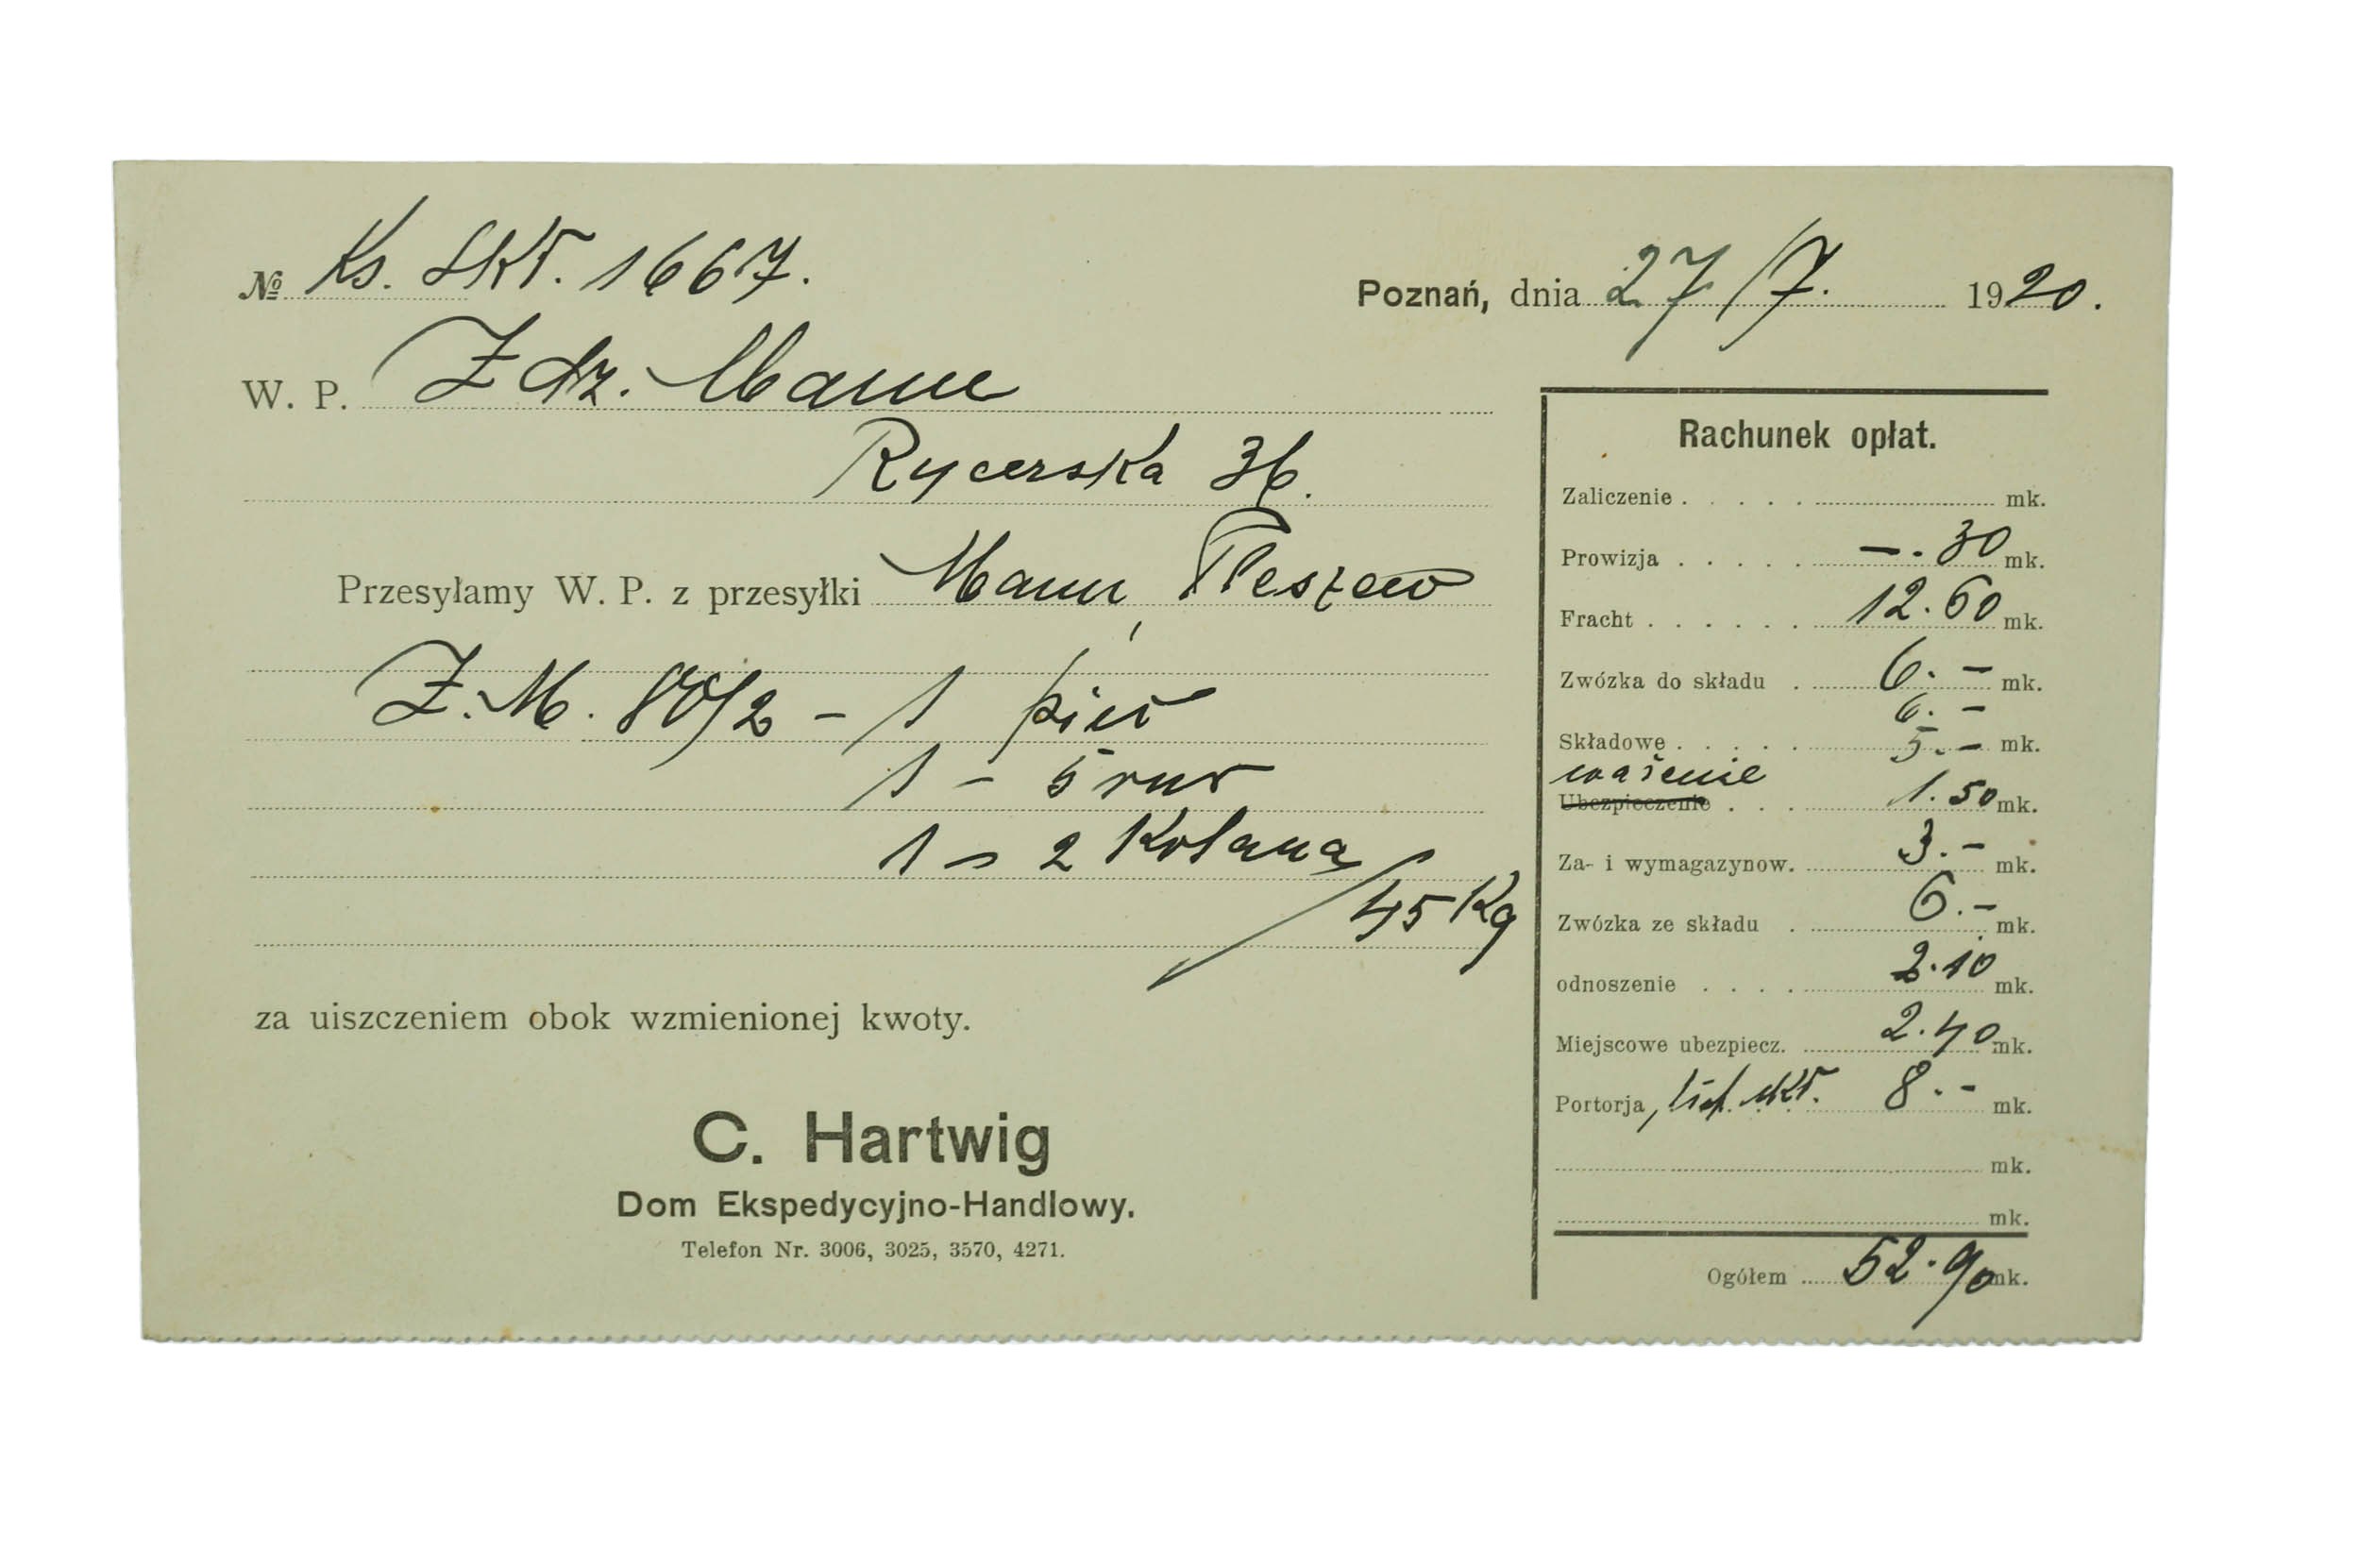 № Ks. Skł. 1667.
Poznań, dnia 27/7. 1920.
W. P. Zdz. Mann
Rycerska 36.
Przesyłamy W. P. z przesyłki Mann, Pleszew
Z. M. 80/2 – 1 piec
1 – 5 rur
1 – 2 Kolana
45 Kg
za uiszczeniem obok wzmienionej kwoty.
C. Hartwig
Dom Ekspedycyjno-Handlowy.
Telefon Nr. 3006, 3025, 3570, 4271.
Rachunek opłat.
Zaliczenie . . . . . mk.
Prowizja . . . . . —.30 mk.
Fracht . . . . . . 12.60 mk.
Zwózka do składu . 6.– mk.
6.–
Składowe . . . . . 5.– mk.
ważenie
Ubezpieczenie . . . 1.50 mk.
Za- i wymagazynow. 3.– mk.
Zwózka ze składu . 6.– mk.
odnoszenie . . . . 2.10 mk.
Miejscowe ubezpiecz. 2.40 mk.
Portorja, skł. 8.– mk.
mk.
mk.
Ogółem 52.90 mk.